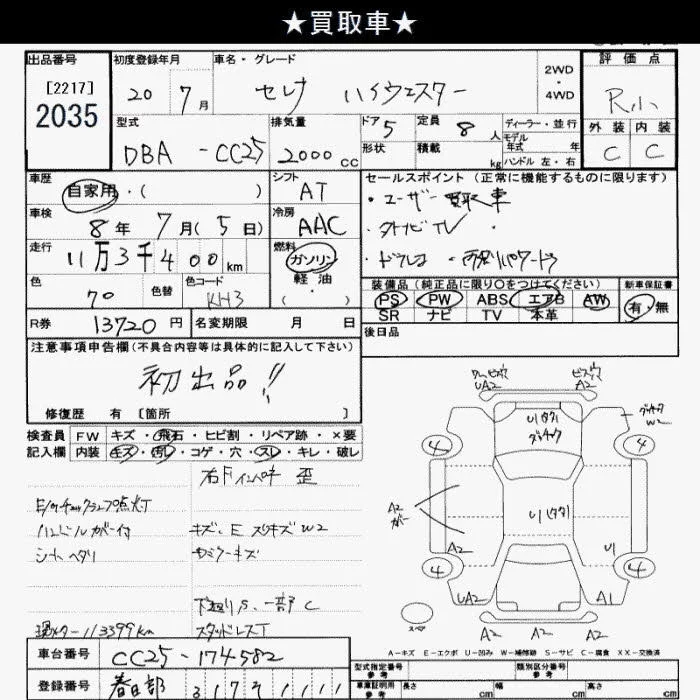 ★買取車★
出品番号
[2217]
2035
初度登録年月
20 7月
車名・グレード
セレナ ハイウェスター
2WD
・
4WD
評価点
R小
外装 内装
C C
型式
DBA - CC25
排気量
2000cc
ドア 5
形状
定員 8人
積載 kg
ディーラー・並行
モデル年式 年
ハンドル 左・右
車歴
自家用・( )
シフト
AT
車検
8年 7月(5日)
冷房
AAC
走行
11万3千400km
燃料
ガソリン
軽油
( )
色
70
色替
色コード
KH3
R券 13720円
名変期限 月 日
セールスポイント(正常に機能するものに限ります)
・ユーザー買取車
・外ナビTV
・ドラレコ ・両側パワードア
装備品(純正品に限り○をつけてください)
PS PW ABS エアB AW
SR ナビ TV 本革
新車保証書
有・無
後日品
注意事項申告欄(不具合内容等は具体的に記入して下さい)
初出品!!
修復歴 有 [箇所 ]
検査員記入欄
FW キズ・飛石・ヒビ割・リペア跡・×要
内装 キズ・汚レ・コゲ・穴・スレ・キレ・破レ
右Fインパネ 歪
E/gチェックランプ点灯
ハンドルカバー付
キズ、E スリキズW2
シートヘタリ
下廻りS、一部C
メーター113399km
スタッドレスT
車台番号
CC25-174582
登録番号
春日部
UA2
A2
U1(タタ)
W2
4
4
A2
ガー
U1(タタ)
A2
U1
4
4
UA2
A1
A2
A2
スペア
A-キズ E-エクボ U-凹み W-補修跡 S-サビ C-腐食 XX-交換済
型式指定番号
参考
類別区分番号
参考
車庫証明用
参考
長さ cm
幅 cm
高さ cm